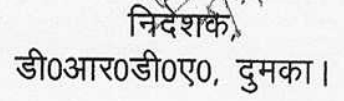 निदेशक,
डी0आर0डी0ए0, दुमका।